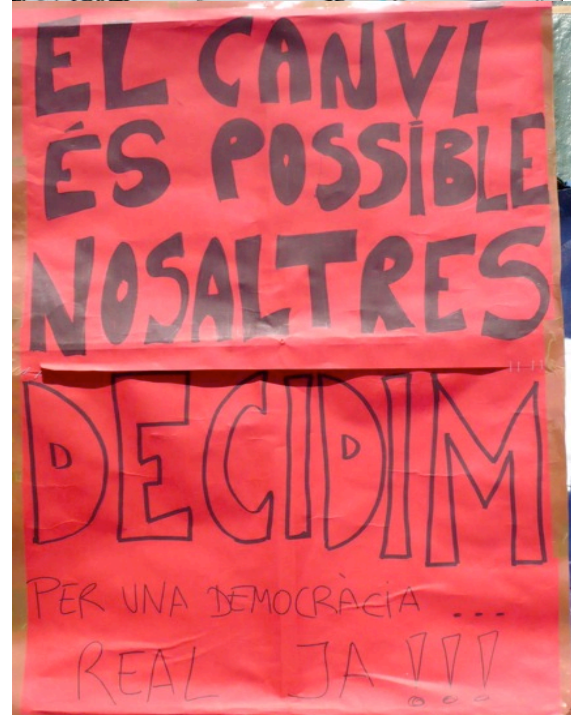 EL CANVI
ÉS POSSIBLE
NOSALTRES
DECIDIM
PER UNA DEMOCRÀCIA ...
REAL JA !!!